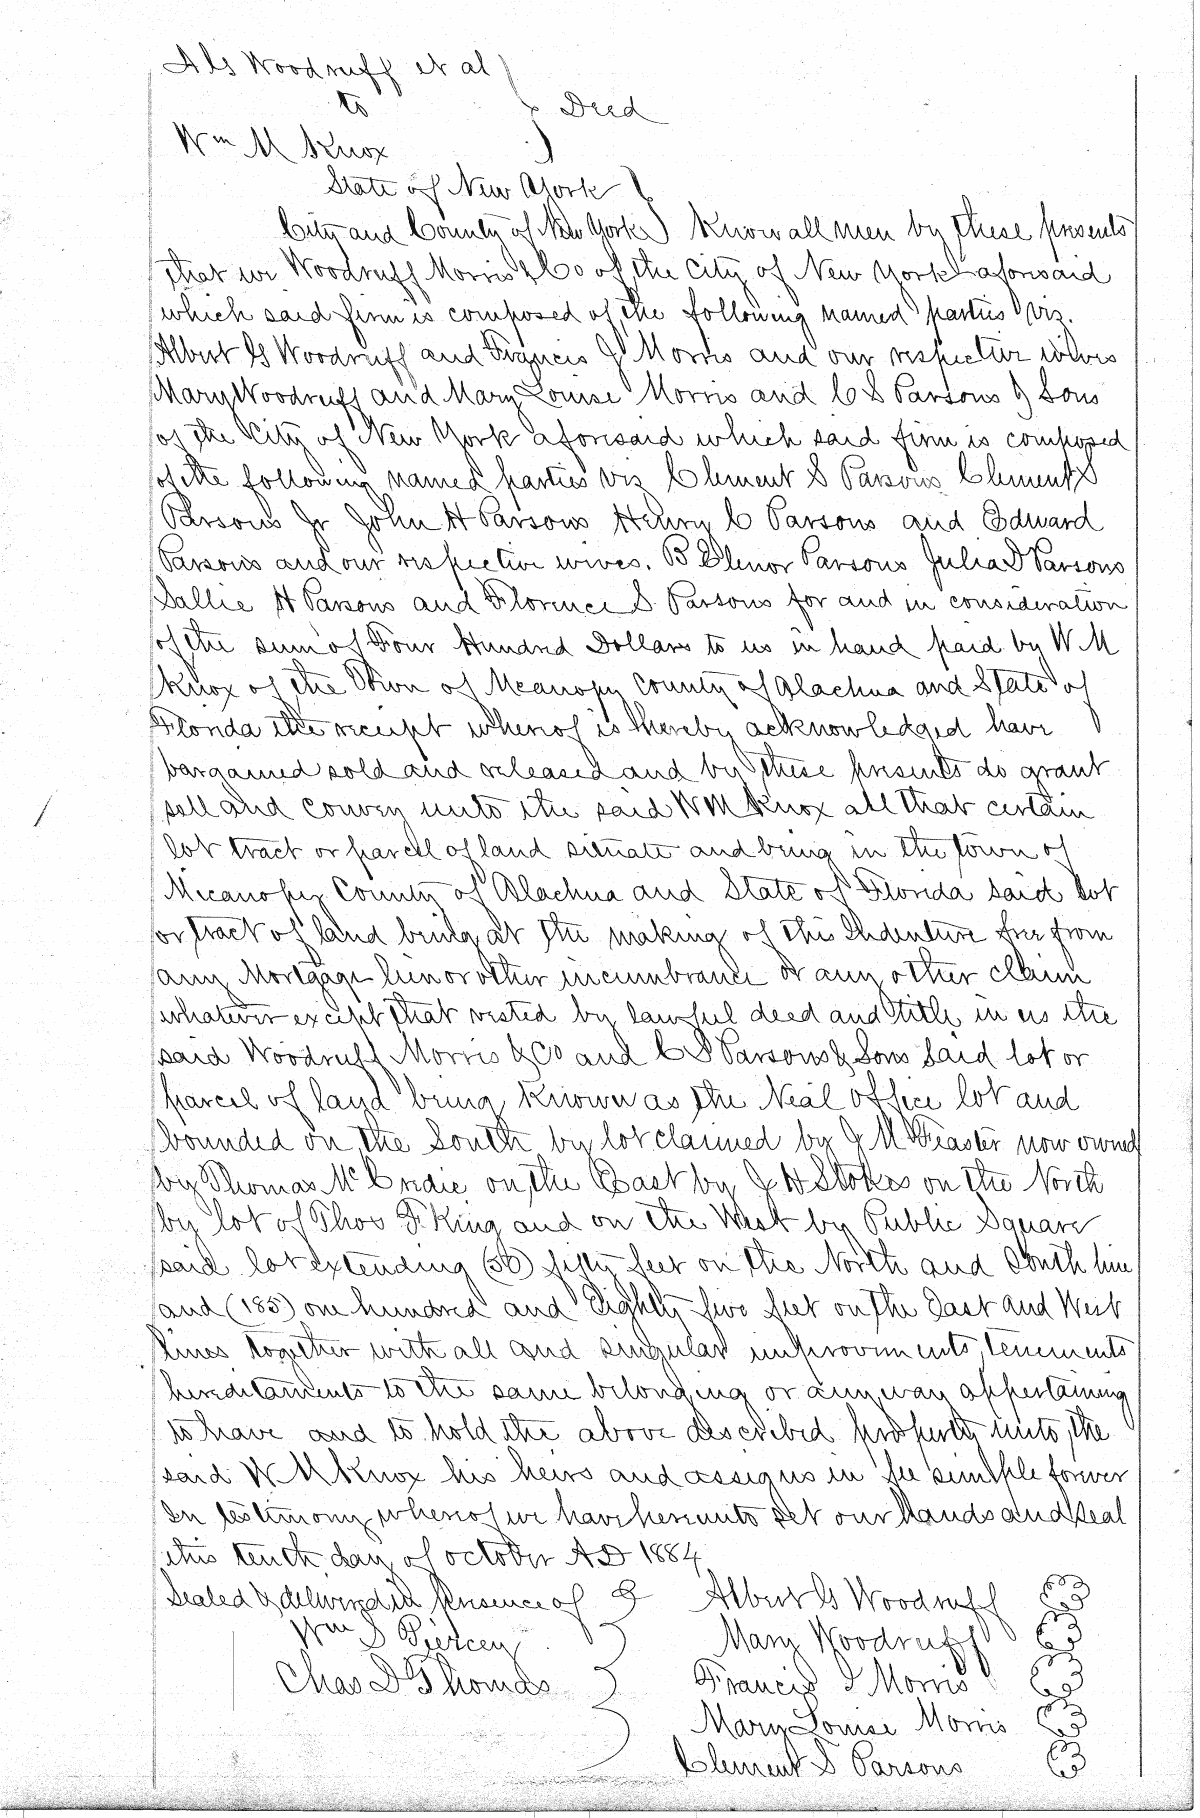 A G Woodruff et al
to } Deed
Wm M Knox
State of New York
City and County of New York } Know all men by these presents
that we Woodruff Morris & Co of the City of New York aforesaid
which said firm is composed of the following named parties viz.
Albert G Woodruff and Francis J Morris and our respective wives
Mary Woodruff and Mary Louise Morris and C S Parsons & Sons
of the City of New York aforesaid which said firm is composed
of the following named parties viz Clement S Parsons Clement S
Parsons Jr John H Parsons Henry C Parsons and Edward
Parsons and our respective wives. B Elenor Parsons Julia D Parsons
Sallie H Parsons and Florence S Parsons for and in consideration
of the sum of Four Hundred Dollars to us in hand paid by W M
Knox of the Town of Mcanopy County of Alachua and State of
Florida the receipt whereof is hereby acknowledged have
bargained sold and released and by these presents do grant
sell and convey unto the said W M Knox all that certain
lot tract or parcel of land situate and being in the town of
Micanopy County of Alachua and State of Florida said lot
or tract of land being at the making of this Indenture free from
any Mortgage lien or other incumbrance or any other claim
whatever except that vested by lawful deed and title in us the
said Woodruff Morris & Co and C S Parsons & Sons said lot or
parcel of land being known as the Neal office lot and
bounded on the South by lot claimed by J M Feaster now owned
by Thomas McCredie on the East by J H Stokes on the North
by lot of Thos F King and on the West by Public Square
said lot extending (50) fifty feet on the North and South line
and (185) one hundred and Eighty five feet on the East and West
lines together with all and singular improvements, tenements
hereditaments to the same belonging or any way appertaining
to have and to hold the above described property unto the
said W M Knox his heirs and assigns in fee simple forever
In testimony whereof we have hereunto set our hands and seal
this tenth day of October AD 1884
Sealed & delivered in presence of } Albert G Woodruff
Wm S Piercey Mary Woodruff
Chas D Thomas Francis J Morris
Mary Louise Morris
Clement S Parsons